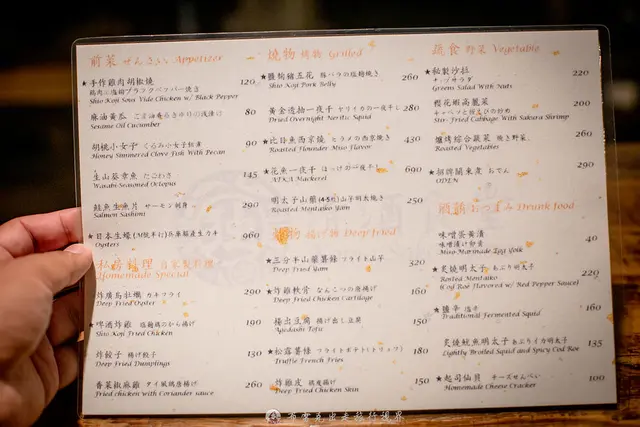 前菜 ぜんさい Appetizer
★手作雞肉胡椒燒 120
鶏肉の塩麹ブラックペッパー焼き
Shio Koji Sous Vide Chicken w/ Black Pepper
麻油黃瓜 80
Sesame Oil Cucumber
胡桃小女子 くるみ小女子佃煮 90
Honey Simmered Clove Fish With Pecan
生山葵章魚 たこわさ 145
Wasabi-Seasoned Octopus
鮭魚生魚片 サーモン刺身 290
Salmon Sashimi
★日本生蠔(M號半打)兵庫縣產生カキ 960
Oysters
私房料理 自家製料理
Homemade Special
炸廣島牡蠣 カキフライ 320
Deep Fried Oyster
★啤酒炸雞 塩麹鶏のから揚げ 190
Shio Koji Fried Chicken
炸餃子 揚げ餃子 130
Deep Fried Dumplings
香菜椒麻雞 タイ風鶏唐揚げ 260
Fried chicken with Coriander sauce
燒物 燒物 Grilled
★鹽麴豬五花 豚バラの塩麹焼き 260
Shio Koji Pork Belly
黃金透抽一夜干 ヤリイカの一夜干し 280
Dried Overnight Neritic Squid
★比目魚西京燒 ヒラメの西京焼き 430
Roasted Flounder Miso Flavor
★花魚一夜干 ほっけの一夜干し 670
ATKA Mackerel
明太子山藥(4-5粒) 山芋明太焼き 250
Roasted Mentaiko Yam
炸物 揚げ物 Deep Fried
★三分半山藥薯條 フライト山芋 220
Deep Fried Yam
★炸雞軟骨 なんこつの唐揚げ 160
Deep Fried Chicken Cartilage
揚出豆腐 揚げ出し豆腐 150
Agedashi Tofu
★松露薯條 フライトポテト(トリュフ) 180
Truffle French Fries
炸雞皮 鶏皮揚げ 150
Deep Fried Chicken Skin
蔬食 野菜 Vegetable
★秘製沙拉 220
ナッツサラダ
Greens Salad With Nuts
櫻花蝦高麗菜 200
キャベツと桜えびの炒め
Stir-Fried Cabbage With Sakura Shrimp
爐烤綜合蔬菜 焼き野菜 260
Roasted Vegetables
★招牌關東煮 おでん 290
ODEN
おつまみ Drunk food
味噌蛋黃漬 40
味噌漬け卵黄
Miso Marinade Egg Yolk
★炙燒明太子 あぶり明太子 160
Rosted Mentaiko
(Cod Roe Flavored w/ Red Pepper Sauce)
★鹽辛 塩辛 160
Traditional Fermented Squid
炙燒魷魚明太子 あぶりイカ明太子 135
Lightly Broiled Squid and Spicy Cod Roe
★起司仙貝 チーズせんべい 100
Homemade Cheese Cracker